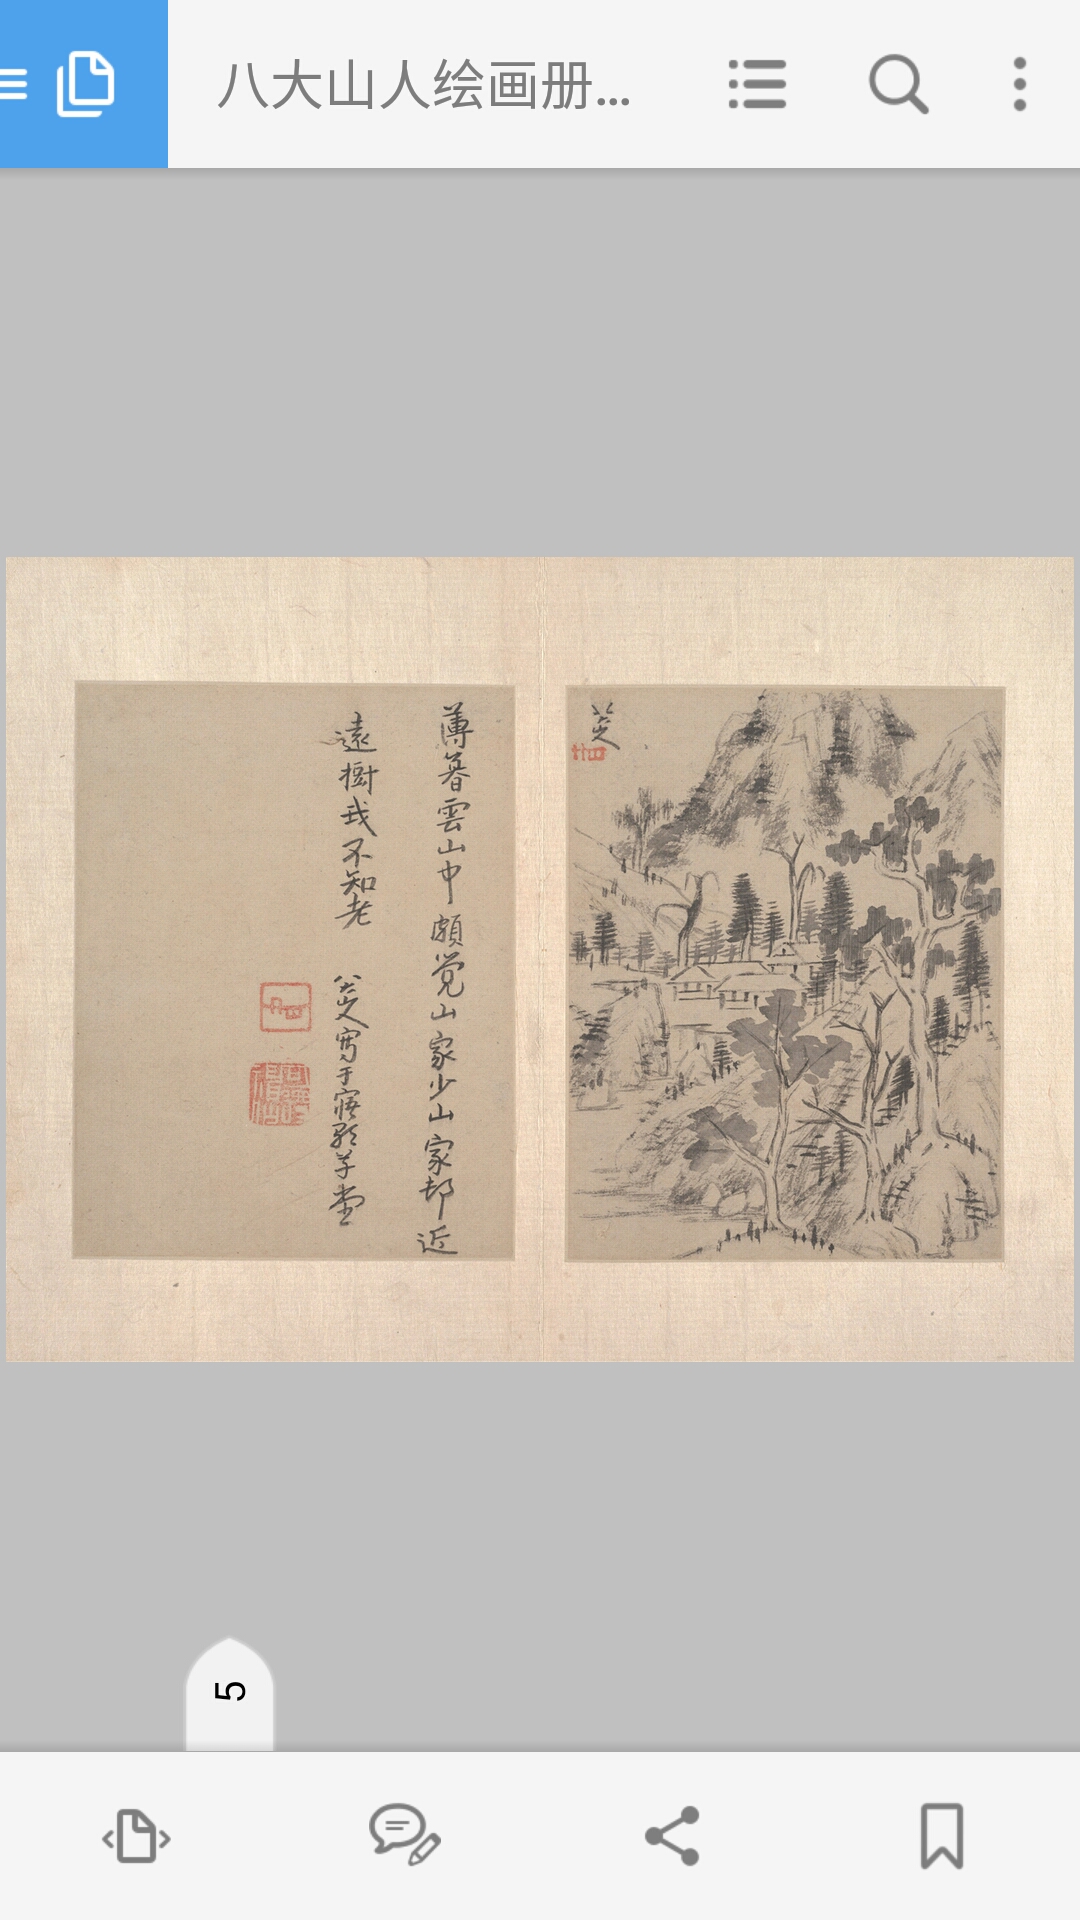 八大山人绘画册...
八大山人
薄暮雲山中頗覚山家少山家邨近
遠樹我不知老
八大山人寫于寤歌草堂
5